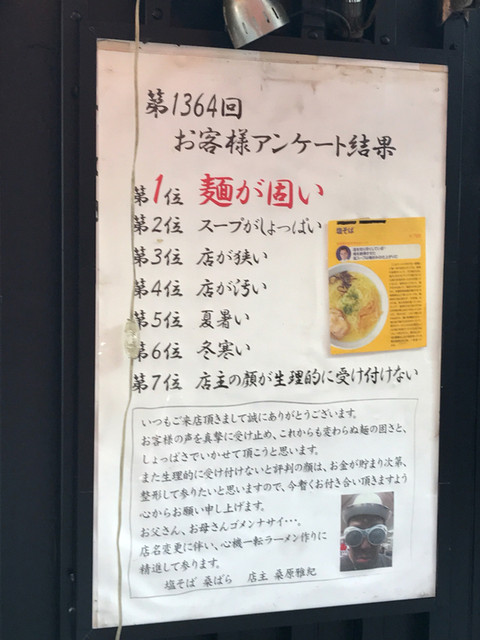 第1364回
お客様アンケート結果
第1位 麺が固い
第2位 スープがしょっぱい
第3位 店が狭い
第4位 店が汚い
第5位 夏暑い
第6位 冬寒い
第7位 店主の顔が生理的に受け付けない
塩そば
いつもご来店頂きまして誠にありがとうございます。
お客様の声を真摯に受け止め、これからも変わらぬ麺の固さと、
しょっぱさでいかせて頂こうと思います。
また生理的に受け付けないと評判の顔は、お金が貯まり次第、
整形して参りたいと思いますので、今暫くお付き合い頂きますよう
心からお願い申し上げます。
お父さん、お母さんゴメンナサイ･･･。
店名変更に伴い、心機一転ラーメン作りに
精進して参ります。
塩そば 桑ばら 店主 桑原雅紀